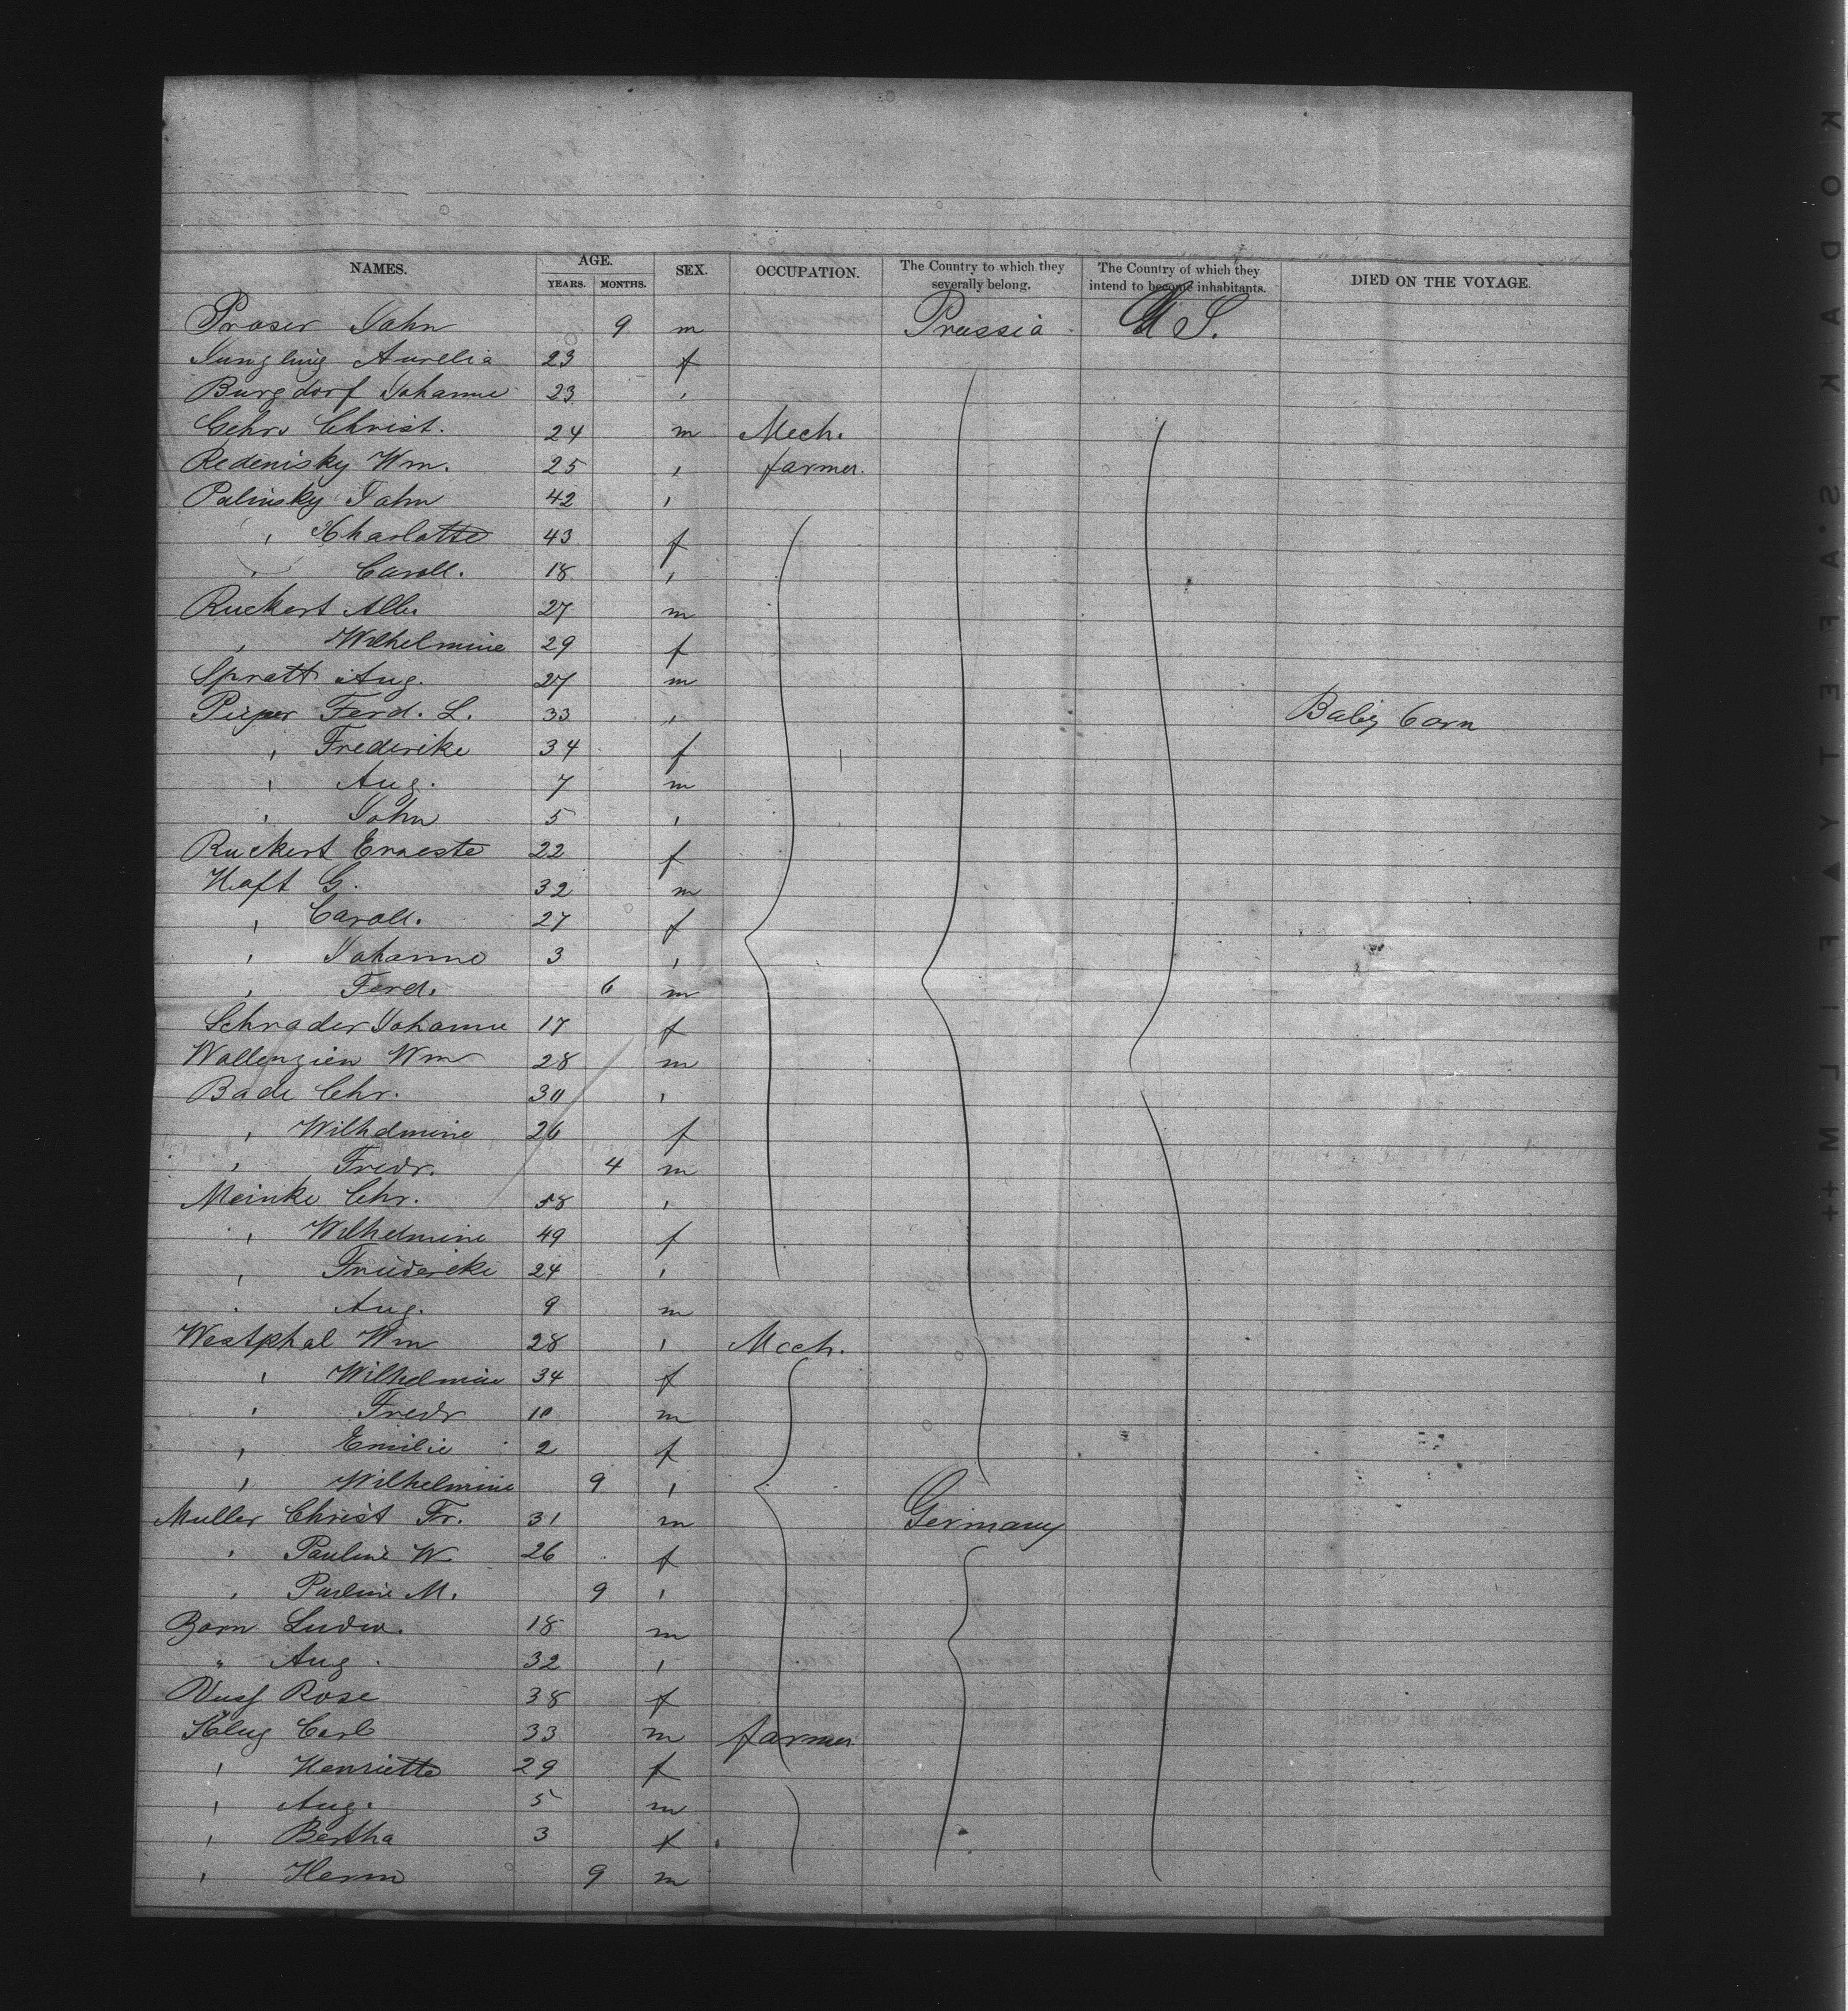 NAMES. AGE. SEX. OCCUPATION. The Country to which they severally belong. The Country of which they intend to become inhabitants. DIED ON THE VOYAGE.
YEARS. MONTHS.
Praser John 9 m Prussia U S.
Jungling Aurelia 23 f
Burgdorf Johanne 23 "
Gehrs Christ. 24 m Mech.
Redenisky Wm. 25 " farmer.
Palinsky John 42 "
" Charlotte 43 f
" Caroll. 18 "
Ruckert Alb. 27 m
" Wilhelmine 29 f
Spratt Aug. 27 m
Pieper Ferd. L. 33 " Baby born
" Frederike 34 f
" Aug. 7 m
" John 5 "
Ruckert Erneste 22 f
Haft G. 32 m
" Caroll. 27 f
" Johanne 3 "
" Ferd. 6 m
Schrader Johanne 17 f
Wallenzien Wm 28 m
Bade Chr. 30 "
" Wilhelmine 26 f
" Fredr. 4 m
Meinke Chr. 58 "
" Wilhelmine 49 f
" Friedereke 24 "
" Aug. 9 m
Westphal Wm 28 " Mech.
" Wilhelmine 34 f
" Fredr 10 m
" Emilie 2 f
" Wilhelmine 9 "
Muller Christ Fr. 31 m Germany
" Pauline W 26 f
" Pauline M. 9 "
Born Ludw. 18 m
" Aug. 32 "
Rose 38 f
Klug Carl 33 m farmer
" Henriette 29 f
" Aug. 5 m
" Bertha 3 f
" Herm 9 m
KODAK S.A.F.E.T.Y ▲ FILM ++